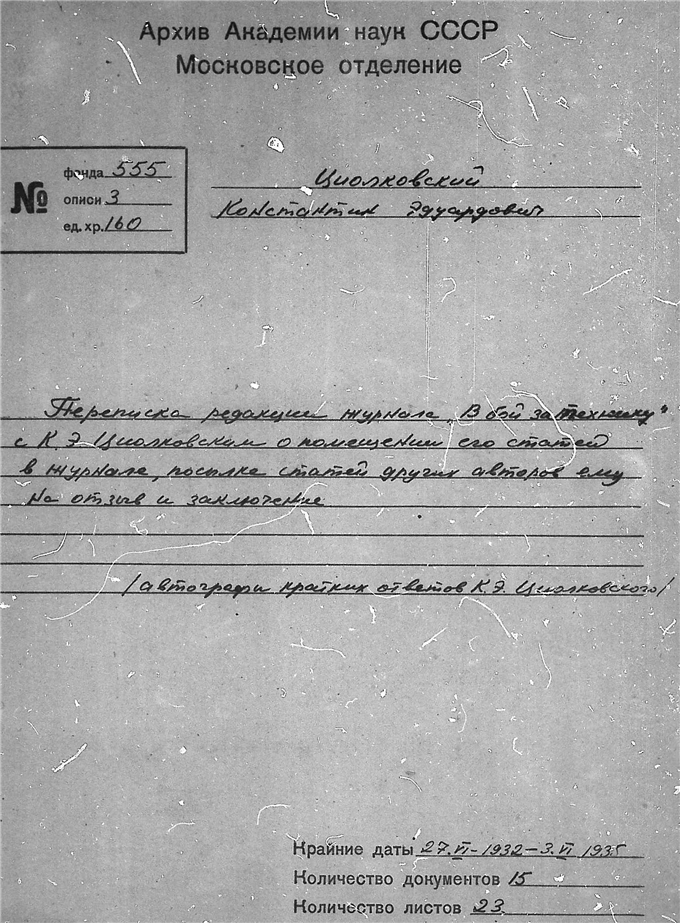 Архив Академии наук СССР
Московское отделение
№
фонда 555
описи 3
ед. хр. 160
Циолковский
Константин Эдуардович
Переписка редакции журнала „В бой за технику“
с К. Э. Циолковским о помещении его статей
в журнале, посылке статей других авторов ему
на отзыв и заключение
/автографы кратких ответов К.Э. Циолковского/
Крайние даты 27.VI-1932-3.VI 1935
Количество документов 15
Количество листов 23